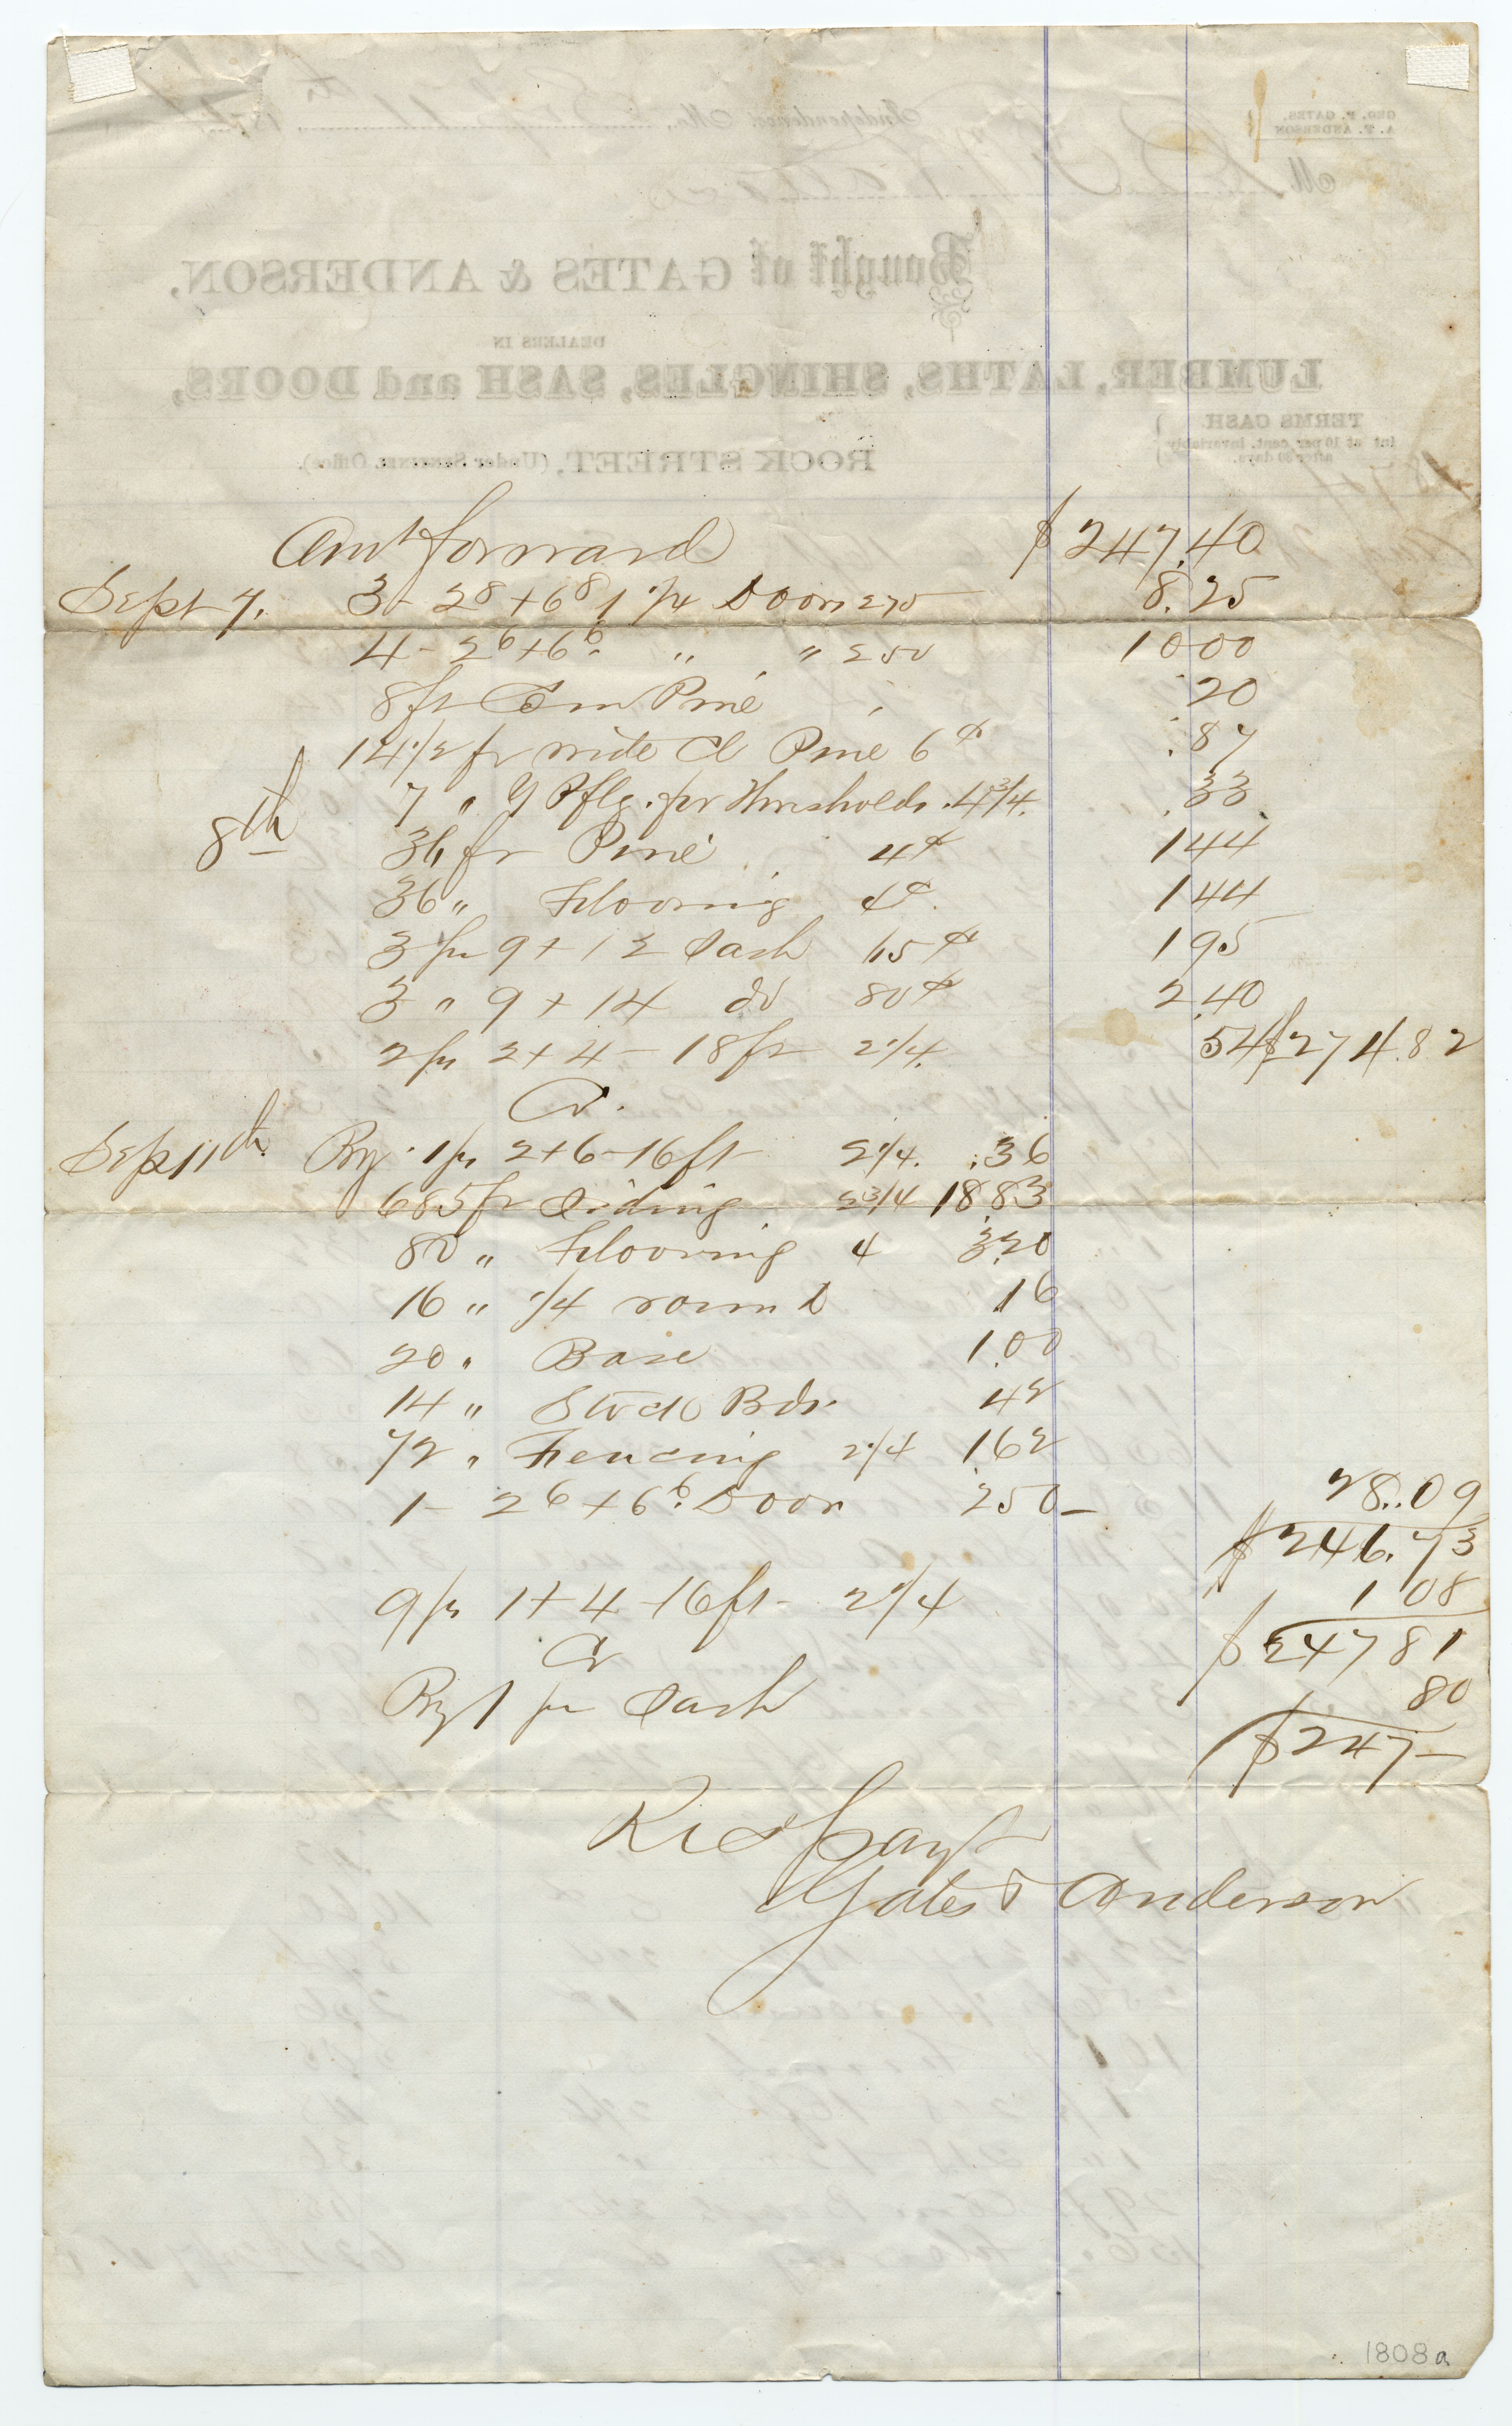 Amt forward $247.40
Sept 7. 3 - 2⁸ + 6⁸ 1 1/4 Doors 275 8.25
4 - 2⁶ + 6⁶. " " 250 10 00
8 ft Com Pine 20
14 1/2 ft wide Cl Pine 6¢ .87
7 " Y P flg. for Thresholds. 4 3/4. .33
8th 36 ft Pine 4¢ 1 44
36 " Flooring 4¢. 1 44
3 pr 9 + 12 Sash 65¢ 1 95
3 " 9 + 14 do 80¢ 2.40
2 ps 2 + 4 - 18 ft 2 1/4. 54 $274.82
Cr.
Sep 11th By 1 ps 2 + 6 - 16 ft 2 1/4. .36
685 ft Siding 2 3/4 18.83
80 " Flooring 4 3.20
16 " 1/4 round .16
20 " Base 1.00
14 " Stock Bds. 42
72 " Fencing 2 1/4 1.62
1 - 2⁶ + 6⁶. Door 250 - 28.09
$246.73
9 ps 1 + 4 - 16 ft - 2 1/4 1 08
Cr $247 81
By 1 pr Sash 80
$247 -
Recd payt
Gates & Anderson
1808a
GEO. F. GATES.
A. T. ANDERSON
Independence Mo., Sept 11th 187
M
Bought of GATES & ANDERSON,
DEALERS IN
LUMBER, LATHS, SHINGLES, SASH and DOORS,
TERMS CASH
Int at 10 per cent. invariably
after 30 days.
ROCK STREET, (Under SENTINEL Office).